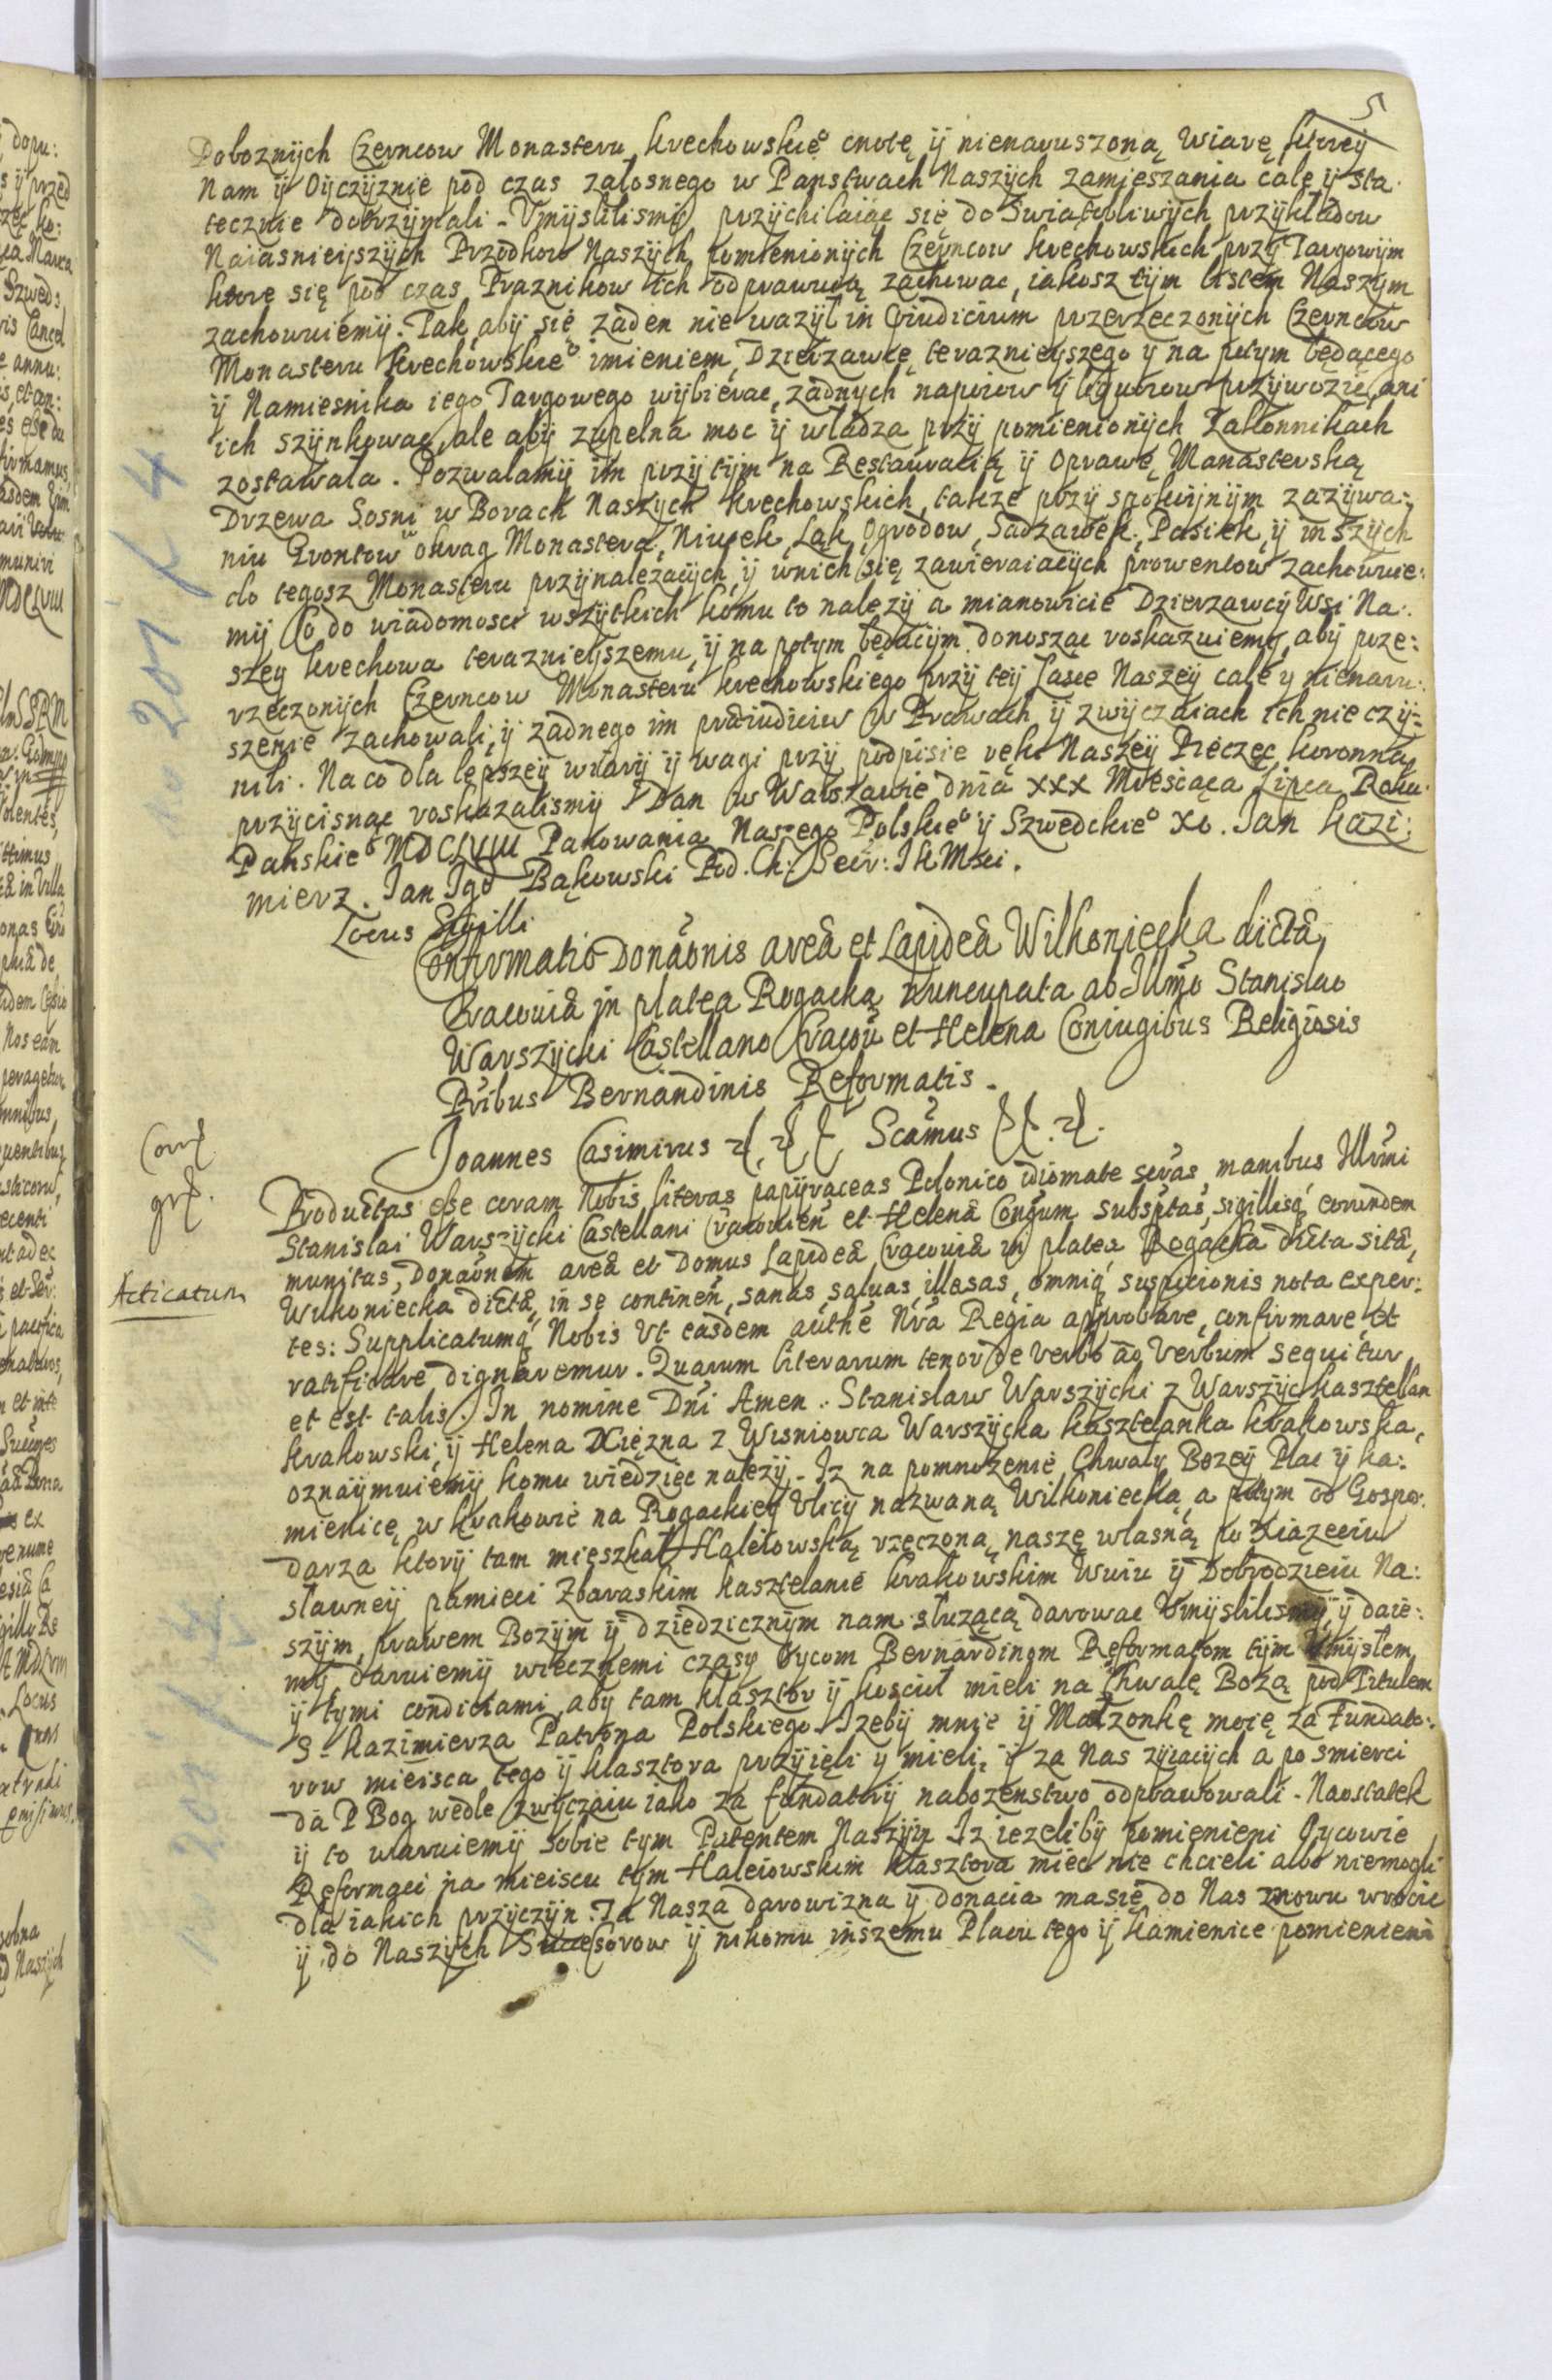 5
Poboznÿch Czerncow Monasteru krechowskie° cnotę ÿ nienaruszoną Wiarę ktorey
Nam ÿ Oÿczÿznie pod czas załosnego w Panstwach Naszÿch zamieszania cale ÿ sta
tecznie dotrzÿmali - Vmÿslilismÿ przÿchilaiąc się do swiatobliwÿch przÿkładow
Naiasnieÿszÿch Przodkow Naszÿch pomienionÿch Czerncow krechowskich przÿ Targowÿm
ktore się pod czas Praznikow ich odprawuią zachować, iakosz tÿm listem Naszym
zachowuiemÿ. Tak, abÿ się zaden nie wazÿł in Præiudicium przerzeczonÿch Czerncow
Monasteru krechowskie° imieniem Dzierzawcę teraznieÿszego ÿ na potym będącego
ÿ Namiesnika iego Targowego wÿbierac, zadnÿch napoiow ÿ liquorow przÿwozic, ani
ich szÿnkowac, ale abÿ zupełna moc ÿ władza przÿ pomienionÿch Zakonnikach
zostawała. Pozwalamÿ im przÿ tÿm na Restauracią ÿ Oprawę Manasterską
Drzewa Sosni w Borach Naszÿch krechowskich, takze przÿ spokoÿnÿm zazÿwa:
niu Grontow okrag Monastera, Niwek, Łąk, Ogrodow, Sadzawek, Pasiek, ÿ inszÿch
do tegosz Monasteru przÿnalezącÿch, ÿ wnich się zawieraiącÿch prowentow zachowuie:
mÿ Co do wiadomosci wszÿtkich komu to nalezÿ a mianowicie Dzierzawcÿ Wsi Na:
szeÿ krechowa teraznieÿszemu, ÿ na potym będącÿm donosząc roskazuiemÿ, abÿ prze:
rzeczonÿch Czerncow Monasteru krechowskiego przÿ teÿ Łasce Naszeÿ cale y nienaru:
szenie zachowali, ÿ zadnego im præiudicium w Prawach ÿ zwÿczaiach ich nie czÿ:
nili. Na co dla lepszeÿ wiarÿ ÿ wagi przÿ podpisie ręki Naszeÿ Pieczęc koronną
przÿcisnąc roskazalismÿ Dan w Warszawie dnia XXX Miesiąca Lipca Roku
Panskie° MDCLVIII Panowania Naszego Polskie° ÿ Szwedckie° XI. Jan Kazi:
mierz. Jan Igo Bąkowski Pod. Ch: Secr: J K Msci.
Locus Sigilli
Confirmatio Donaonis areæ et Lapideæ Wilkoniecka dictæ,
Cracouiæ in platea Rogacka nuncupata ab Illmo Stanislao
Warszÿcki Castellano Cracou et Helena Coniugibus Religiosis
Pribus Bernardinis Reformatis.
Joannes Casimirus Scamus
Productas esse coram Nobis literas papÿraceas Polonico idiomate scras, manibus Illmi
Stanislai Warszÿcki Castellani Cracouien et Helenæ Congum subsptas, sigillisq eorundem
munitas, Donaonem areæ et Domus Lapideæ Cracouiæ in platea Rogacka dicta sitæ,
Wilkoniecka dictæ, in se continen, sanas, saluas, illæsas, omniq suspicionis nota exper:
tes: Supplicatumq Nobis Vt easdem authe Nra Regia approbare, confirmare, et
ratificare dignaremur. Quarum literarum tenor de verbo ad verbum sequitur
et est talis. In nomine Dni Amen. Stanisław Warszÿcki z Warszÿc kasztellan
krakowski, ÿ Helena Xięzna z Wisniowca Warszÿcka kasztelanka krakowska,
oznaÿmuiemÿ komu wiedziec nalezÿ. Iz na pomnozenie Chwałÿ Bozeÿ Plac ÿ ka:
mienicę w krakowie na Rogackieÿ Vlicÿ nazwaną Wilkoniecką, a potym od Gospo:
darza ktorÿ tam mięszkał Haleiowską rzeczoną, naszę własną po Xiązęciu
sławneÿ pamięci Zbaraskim kasztelanie krakowskim Wuiu ÿ Dobrodzieiu Na:
szÿm, prawem Bozÿm ÿ dziedzicznÿm nam słuzącą darowac Vmÿslilismÿ, ÿ daie:
mÿ daruiemÿ wiecznemi czasÿ Oÿcom Bernardinom Reformatom tÿm Vmÿsłem
ÿ tymi condiciami, abÿ tam klasztor ÿ kosciół mieli na Chwałę Bozą pod Titulem
S- kazimierza Patrona Polskiego. Izebÿ mnie ÿ Małzonkę moię za Fundato:
row mieisca tego ÿ klasztora przÿięli y mieli, ÿ za Nas zÿiącÿch a po smierci
da P Bog wedle zwÿczaiu iako za fundatorÿ nabozenstwo odprawowali. Naostatek
ÿ to waruiemÿ sobie tym Patentem Naszÿm Iz iezelibÿ pomienieni Oÿcowie
Reformaci na mieiscu tym Haleiowskim klasztora miec nie chcieli albo niemogli
dla iakich przÿczÿn. Ta Nasza darowizna ÿ donacia masię do Nas znowu wrocic
ÿ do Naszÿch Successorow ÿ nikomu inszemu Placu tego ÿ kamienice pomienieni
Acticatum